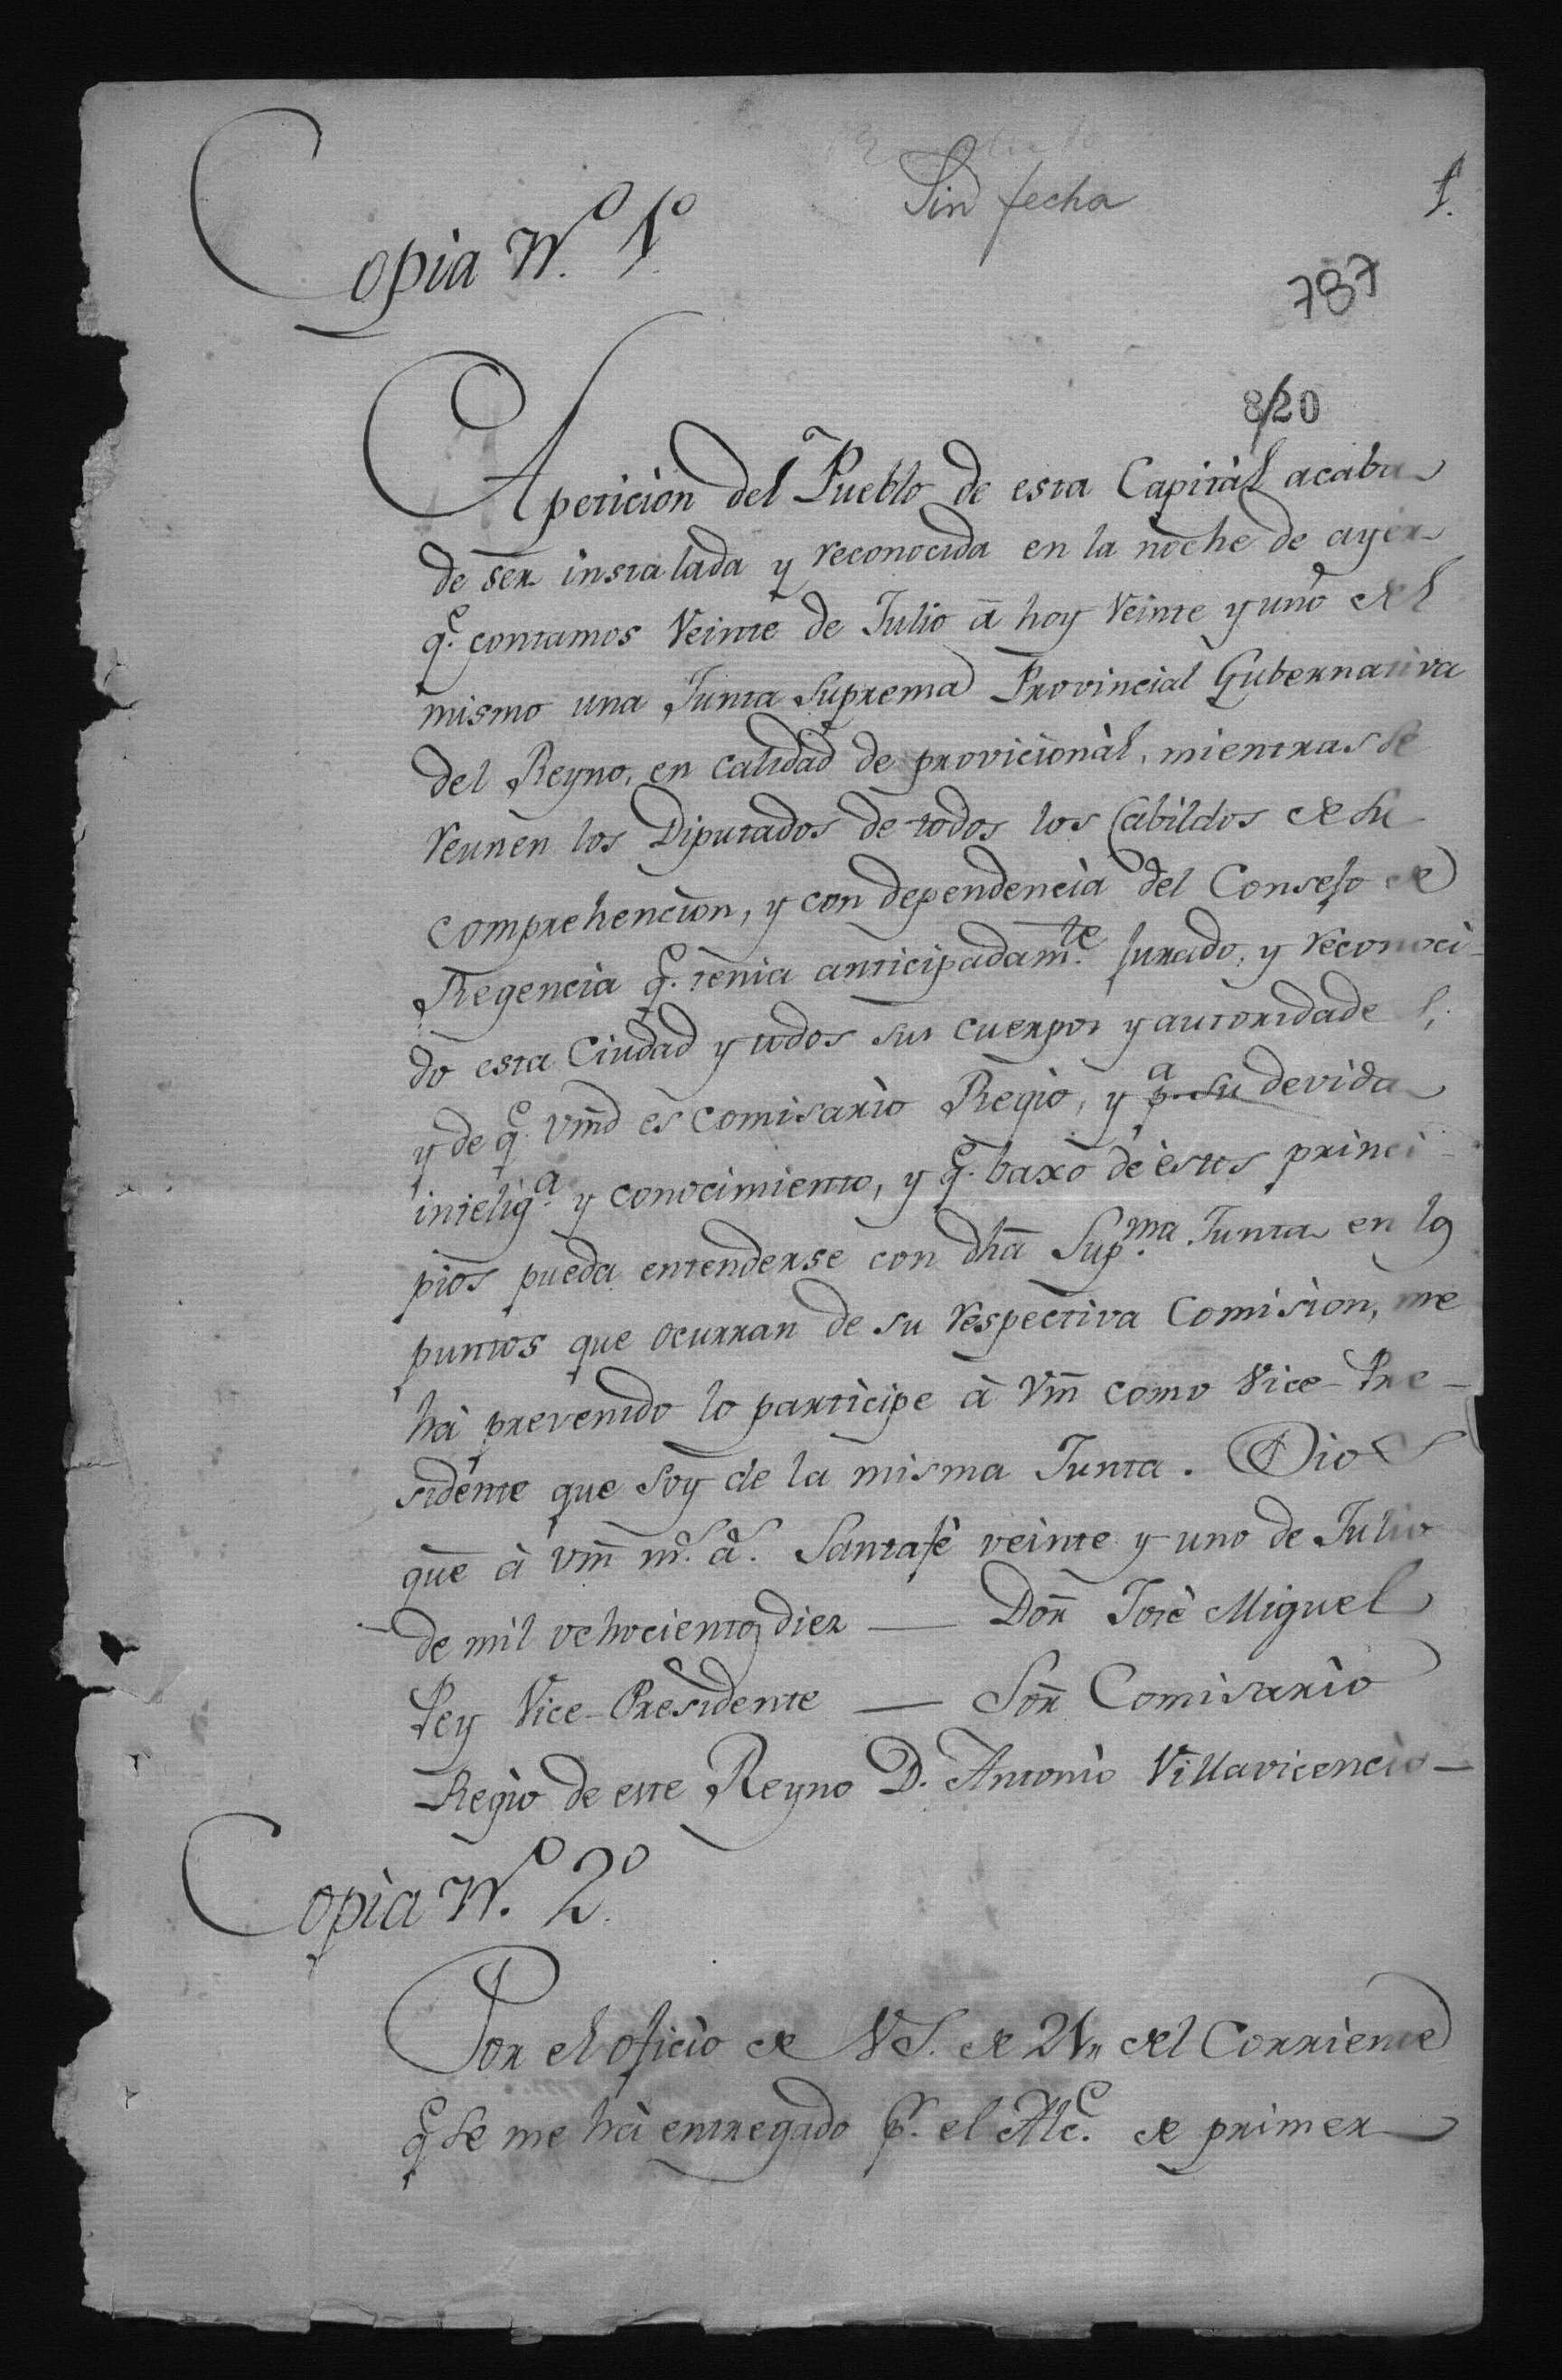 Sin fecha
1.
Copia N.º 1º
787
820
A peticion del Pueblo de esta Capitàl acaba
de ser instalada y reconocida en la noche de ayer
q.e contamos Veinte de Julio â hoy Veinte y uno del
mismo una Junta Suprema Provincial Gubernativa
del Reyno, en calidad de provicionàl, mientras se
reunen los Diputados de todos los Cabildos de su
comprehencion, y con dependencià del Consejo de
Regencia q.e tenia anticipadam.te jurado, y reconoci-
do esta Ciudad y todos sus cuerpos y autoridades,
y de q.e Vmd es comisario Regio, y p.a su devida
intelig.a y conocimiento, y q.e baxo de estos princi-
pios pueda entenderse con dhā Sup.ma Junta en los
puntos que ocurran de su respectiva Comision, me
hà prevenido lo participe à Vm̄ como Vice-Pre-
sidente que soy de la misma Junta. Dios
gue à Vm̄ m.s a.s Santafè veinte y uno de Julio
de mil ochocientos diez — Don Josè Miguel
Pey Vice-Presidente — Sōr Comisario
Regio de este Reyno D. Antonio Villavicencio —
Copia N.º 2º
Por el oficio de VS. de 21,, del Corriente
q.e se me hà entregado p.r el Alc.e de primer